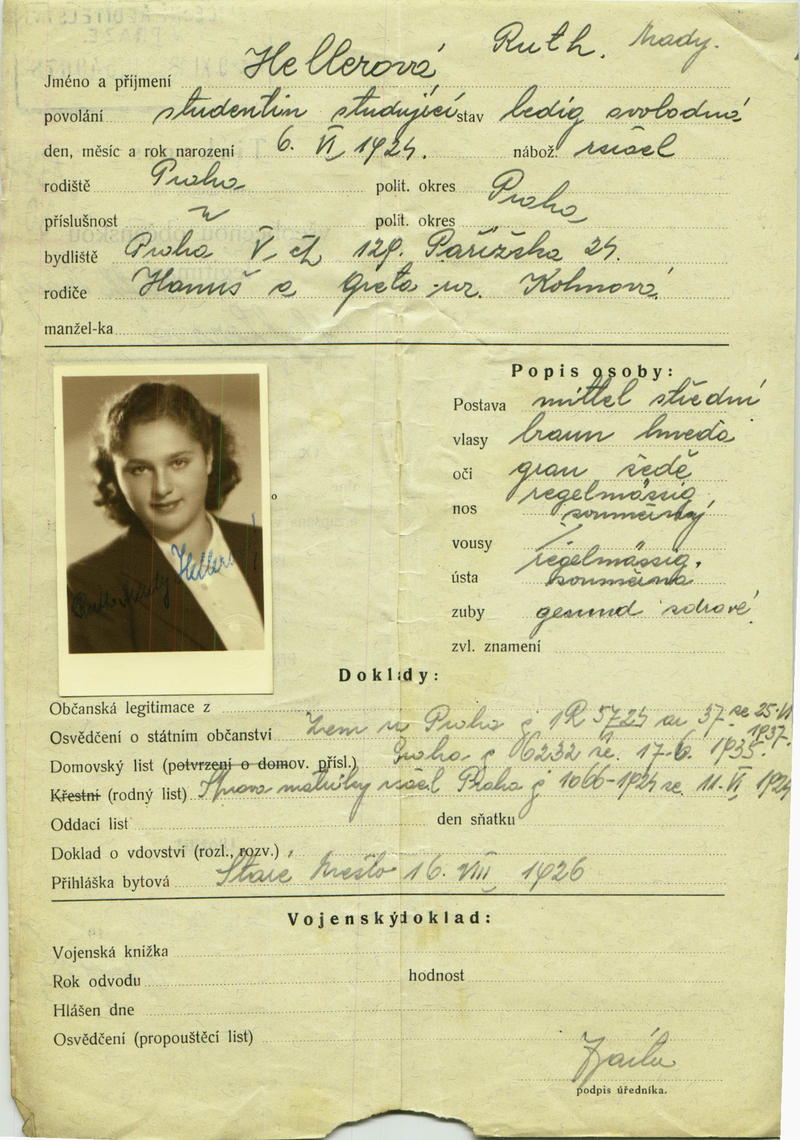 Jméno a příjmení Hellerová Ruth. Mady.
povolání studentin studující stav ledig svobodná
den, měsíc a rok narození 6. VI. 1924. nábož.
rodiště Praha polit. okres Praha
příslušnost " polit. okres
bydliště Praha V. čp 129. Pařížská 24.
rodiče Hanuš a Greta nr. Kohnová
manžel-ka
Popis osoby:
Postava mittel střední
vlasy braun hnědá
oči grau šedé
nos regelmässig souměrný
vousy /
ústa regelmässig. souměrná
zuby gesund zdravé
zvl. znamení
Ruth Mady Hellerová
Doklady:
Občanská legitimace z
Osvědčení o státním občanství Zem úř Praha č 1R 5724 ai 37 ze 25.
1937.
Domovský list (potvrzení o domov. přísl.) Praha č 16232 ze. 17.6. 1935.
Křestní (rodný list) matriky Praha č 1066-1924 ze. 11. VI. 1924
Oddací list den sňatku
Doklad o vdovství (rozl., rozv.)
Přihláška bytová Staré Město 16. VIII 1926
Vojenský doklad:
Vojenská knížka
Rok odvodu hodnost
Hlášen dne
Osvědčení (propouštěcí list)
podpis úředníka.